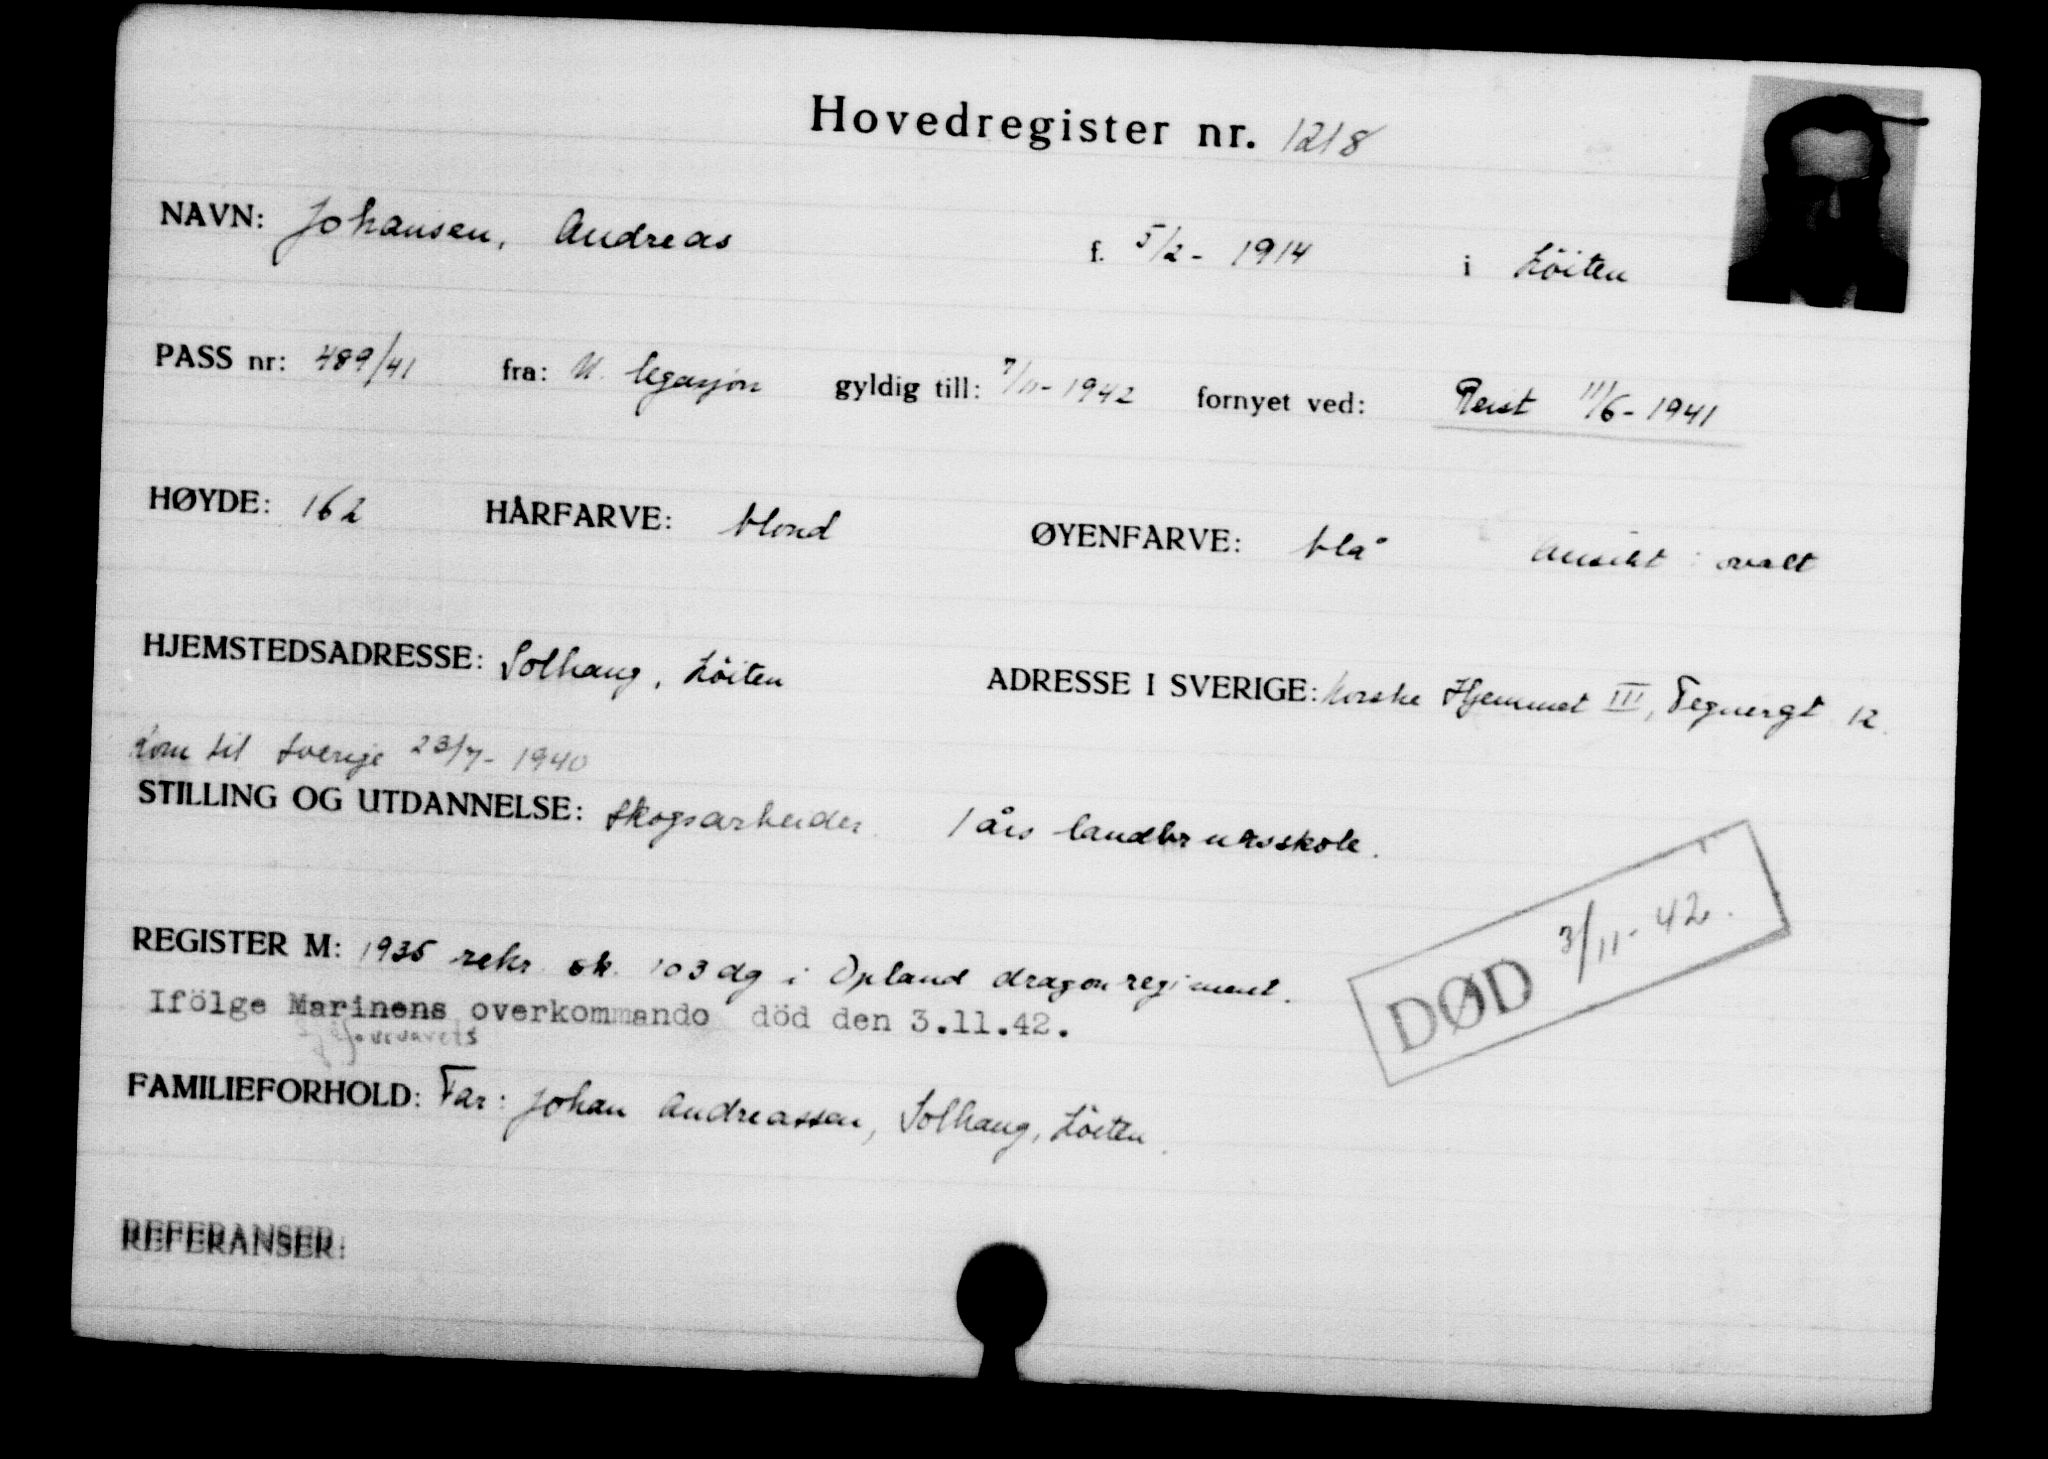 Hovedregister nr. 1218
NAVN: Johansen, Andreas f. 5/2- 1914 i Löiten
PASS nr: 489/41 fra: N. legasjon gyldig till: 7/11- 1942 fornyet ved: Reist 11/6- 1941
HØYDE: 162 HÅRFARVE: blond ØYENFARVE: blå Ansikt: ovalt
HJEMSTEDSADRESSE: Solhaug, Löiten ADRESSE I SVERIGE: Norske Hjemmet III, Tegnergt 12.
Kom til Sverige 23/7- 1940
STILLING OG UTDANNELSE: Skogsarbeider. 1 års landbruksskole.
REGISTER M: 1935 rekr. sk. 103 dg i Opland dragonregiment.
Ifölge Marinens overkommando död den 3.11.42.
Forsvarets
DØD 3/11- 42.
FAMILIEFORHOLD: Far: Johan Andreassen, Solhaug, Löiten.
REFERANSER: